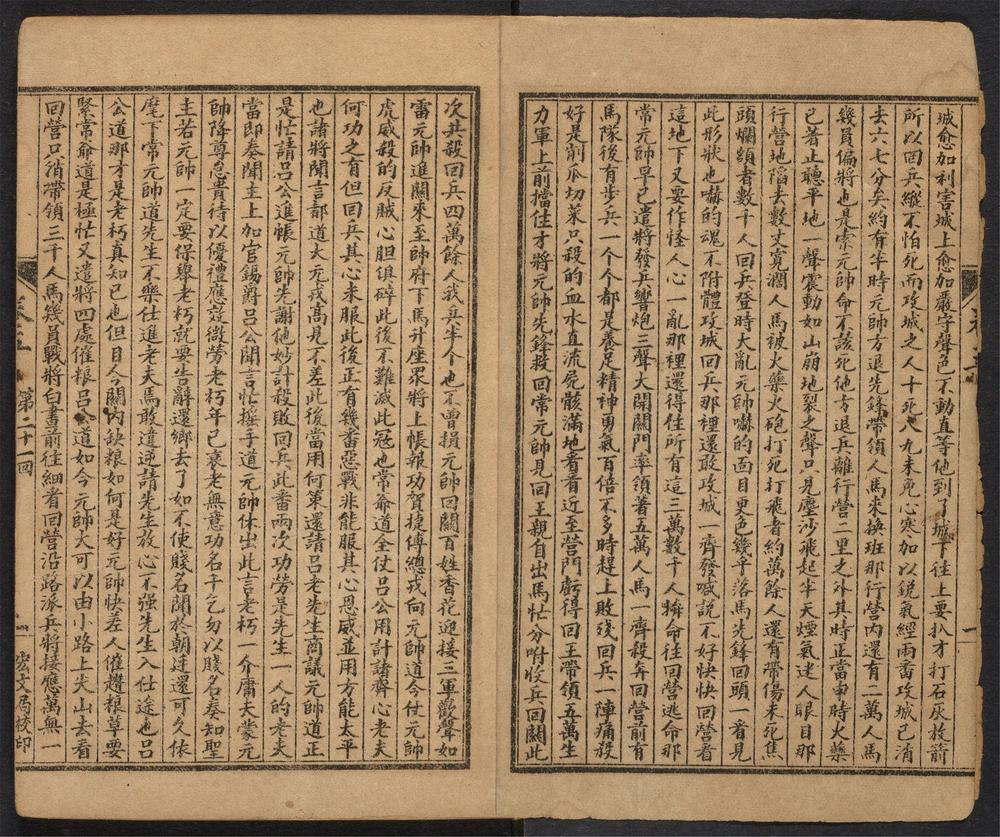 城愈加利害城上愈加嚴守聲色不動直等他到了城下往上要扒才打石灰放箭
所以回兵縱不怕死而攻城之人十死八九未免心寒加以銳氣經兩番攻城已消
去六七分矣約有半時元帥方退先鋒帶領人馬來換班那行營內還有二萬人馬
幾員偏將也是索元帥命不該死他方退兵離行營二里之外其時正當申時火藥
已著止聽平地一聲震動如山崩地裂之聲只見塵沙飛起半天煙氣迷人眼目那
行營地陷去數丈寬濶人馬被火藥火砲打死打飛者約萬餘人還有帶傷未死焦
頭爛額者數千人回兵登時大亂元帥嚇的面目更色幾乎落馬先鋒回頭一看見
此形狀也嚇的魂不附體攻城回兵那裡還敢攻城一齊發喊說不好快快回營看
這地下又要作怪人心一亂那裡還得住所有這三萬數千人拚命往回營逃命那
常元帥早已遣將發兵號炮三聲大開關門率領著五萬人馬一齊殺奔回營前有
馬隊後有步兵一个个都是養足精神勇氣百倍不多時趕上敗殘回兵一陣痛殺
好是削瓜切菜只殺的血水直流屍骸滿地看看近至營門虧得回王帶領五萬生
力軍上前擋住才將元帥先鋒救回常元帥見回王親自出馬忙分咐收兵回關此
次共殺回兵四萬餘人我兵半个也不曾損元帥回關百姓香花迎接三軍歡聲如
雷元帥進關來至帥府下馬升座眾將上帳報功賀捷傅總戎向元帥道今仗元帥
虎威殺的反賊心胆俱碎此後不難滅此寇也常爺道全仗呂公用計諸將齊心老夫
何功之有但回兵其心未服此後正有幾番惡戰非能服其心恩威並用方能太平
也諸將聞言都道大元戎高見不差此後當用何策還請呂老先生商議元帥道正
是忙請呂公進帳元帥先謝他妙計殺敗回兵此番兩次功勞是先生一人的老夫
當即奏聞主上加官錫爵呂公聞言忙搖手道元帥休出此言老朽一介庸夫蒙元
帥降尊怠貴待以優禮應效微勞老朽年已衰老無意功名千乞勿以賤名奏知聖
主若元帥一定要保舉老朽就要告辭還鄉去了如不使賤名聞於朝廷還可久依
麾下常元帥道先生不樂仕進老夫焉敢違逆請先生放心不强先生入仕途也呂
公道那才是老朽真知已也但目今關內缺粮如何是好元帥快差人催趲粮草要
緊常爺道是極忙又遣將四處催粮呂公道如今元帥大可以由小路上尖山去看
回營只消帶領三千人馬幾員戰將白晝前往細看回營沿路派兵將接應萬無一
卷三
第二十一回
宏文局校印